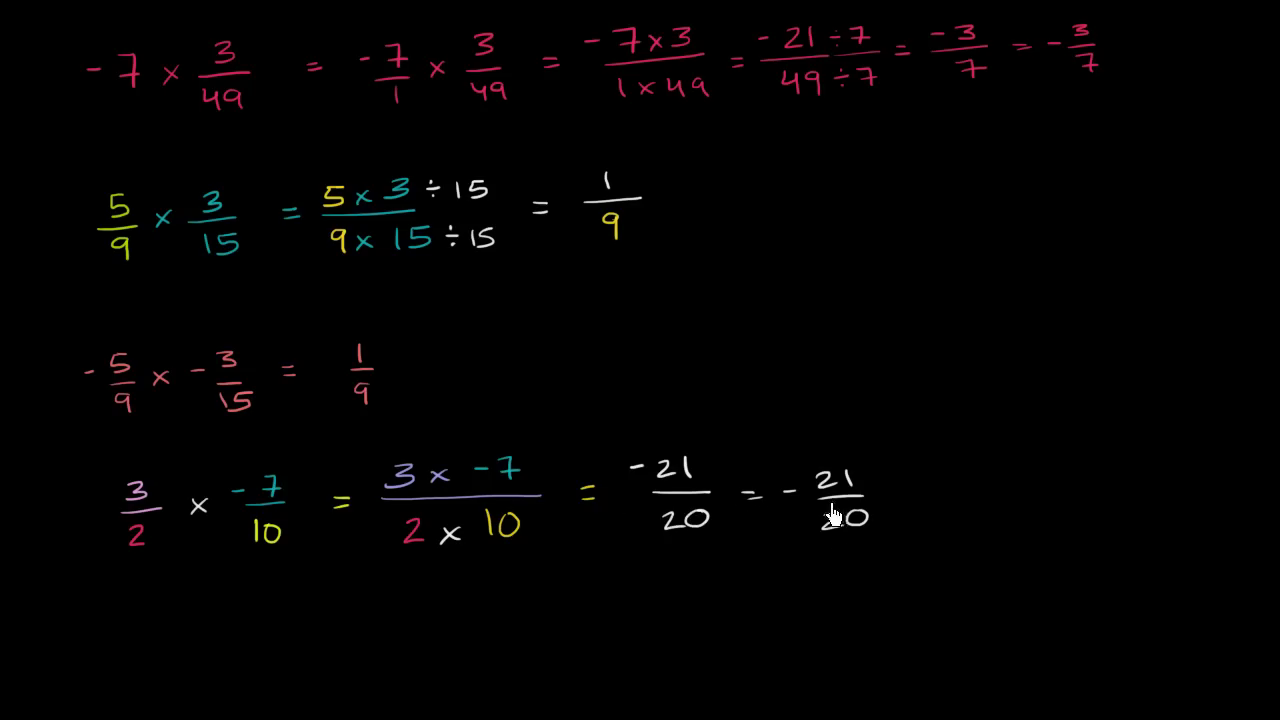 -7 × 3/49 = -7/1 × 3/49 = -7×3/1×49 = -21÷7/49÷7 = -3/7 = -3/7
5/9 × 3/15 = 5×3÷15/9×15÷15 = 1/9
-5/9 × -3/15 = 1/9
3/2 × -7/10 = 3×-7/2×10 = -21/20 = -21/20